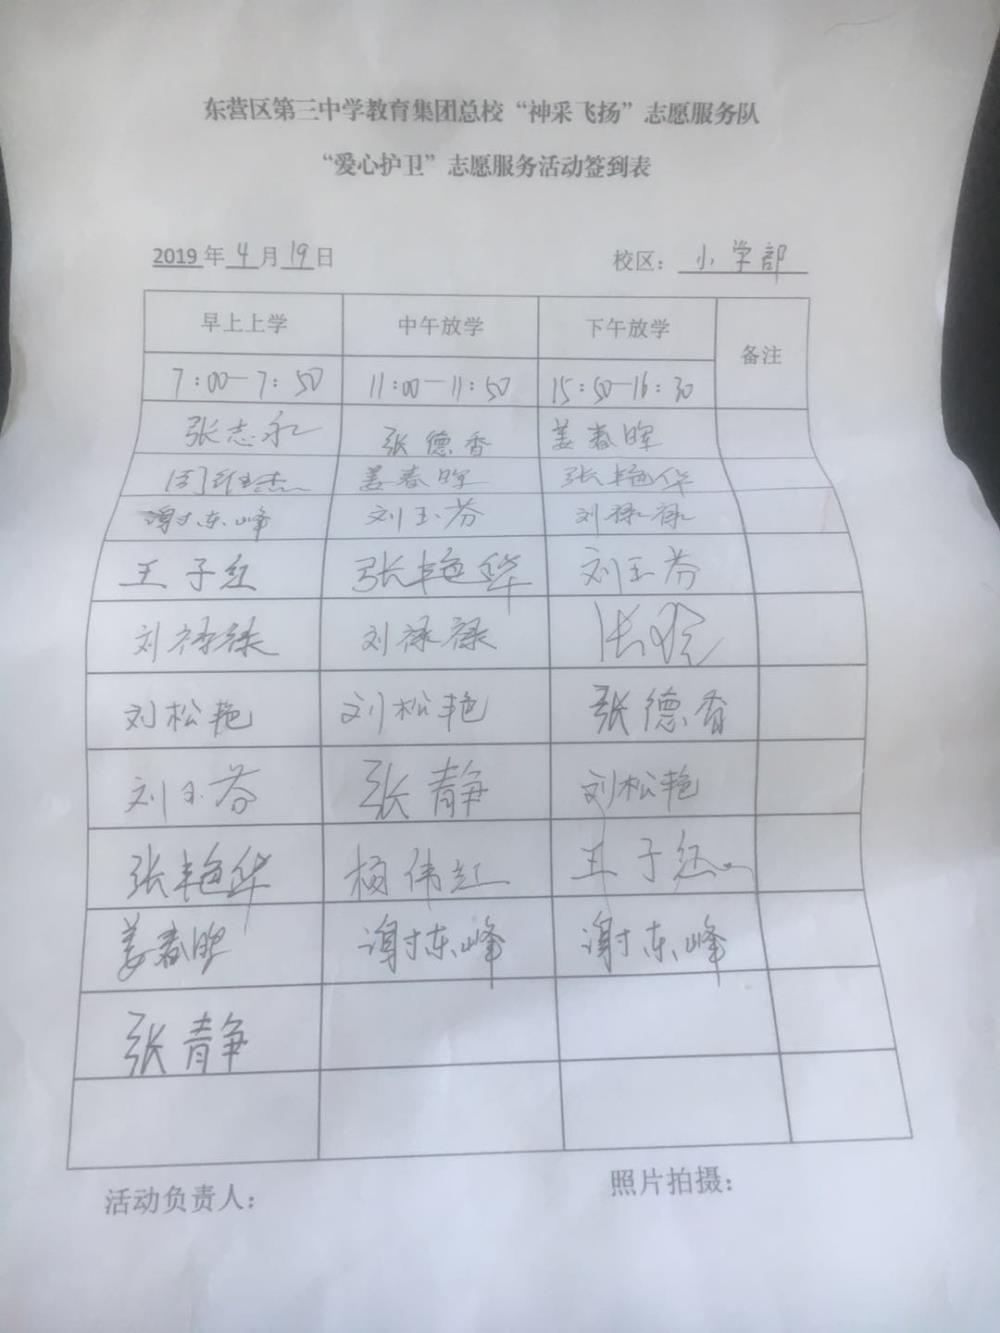 东营区第三中学教育集团总校“神采飞扬”志愿服务队
“爱心护卫”志愿服务活动签到表
2019年4月19日 校区：小学部
早上上学 中午放学 下午放学 备注
7:00—7:50 11:00—11:50 15:50—16:30
张志永 张德香 姜春晖
姜春晖 张艳华
谢东峰 刘玉芬 刘禄禄
王子红 张艳华 刘玉芬
刘禄禄 刘禄禄
刘松艳 刘松艳 张德香
刘玉芬 张静 刘松艳
张艳华 杨伟红 王子红
姜春晖 谢东峰 谢东峰
张静
活动负责人： 照片拍摄：